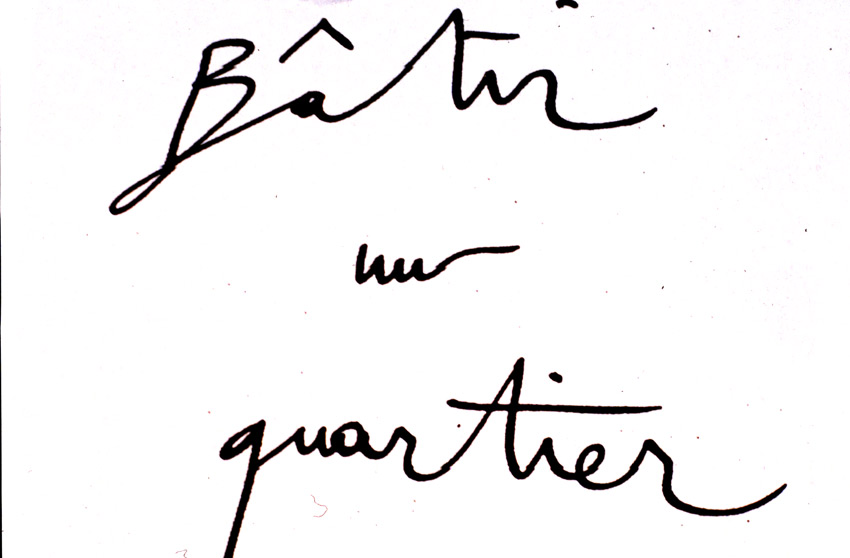 Bâtir
un
quartier